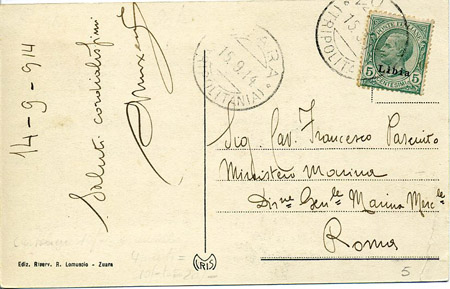 14-9-914
Saluti cordialissimi
ZUARA
15.9.14
(TRIPOLITANIA)
ZU
15.
(TRIPOLITA
POSTE ITALIANE
Libia
5 CENTESIMI 5
Sig. Cav. Francesco
Ministero Marina
Dir.ne Gen.le Marina Merc.le
Roma
Ediz. Riserv. R. Lomuscio - Zuara
MCRIS
5